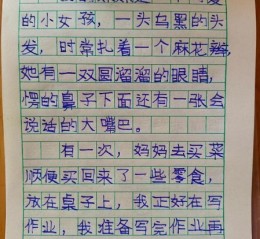 的小女孩，一头乌黑的头
发，时常扎着一个麻花辫，
她有一双圆溜溜的眼睛，
愣的鼻子下面还有一张会
说话的大嘴巴。
有一次，妈妈去买菜
顺便买回来了一些零食，
放在桌子上，我正好在写
作业，我准备写完作业再